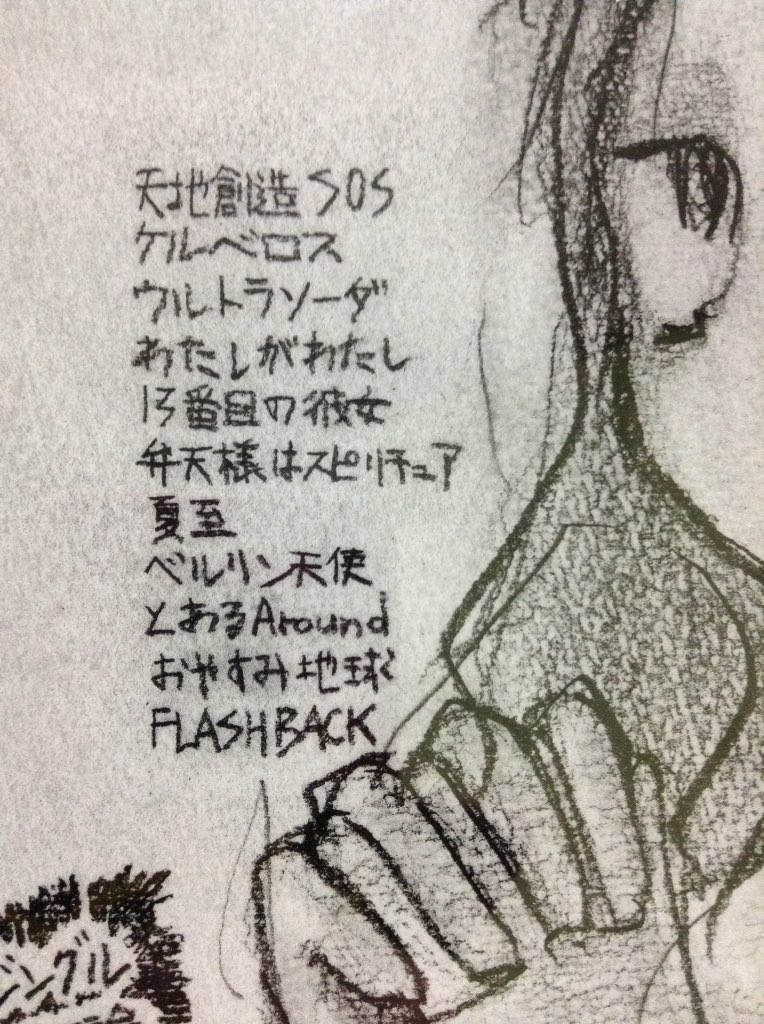 天地創造SOS
ケルベロス
ウルトラソーダ
わたしがわたし
13番目の彼女
弁天様はスピリチュア
夏至
ベルリン天使
とあるAround
おやすみ地球
FLASHBACK
ングル